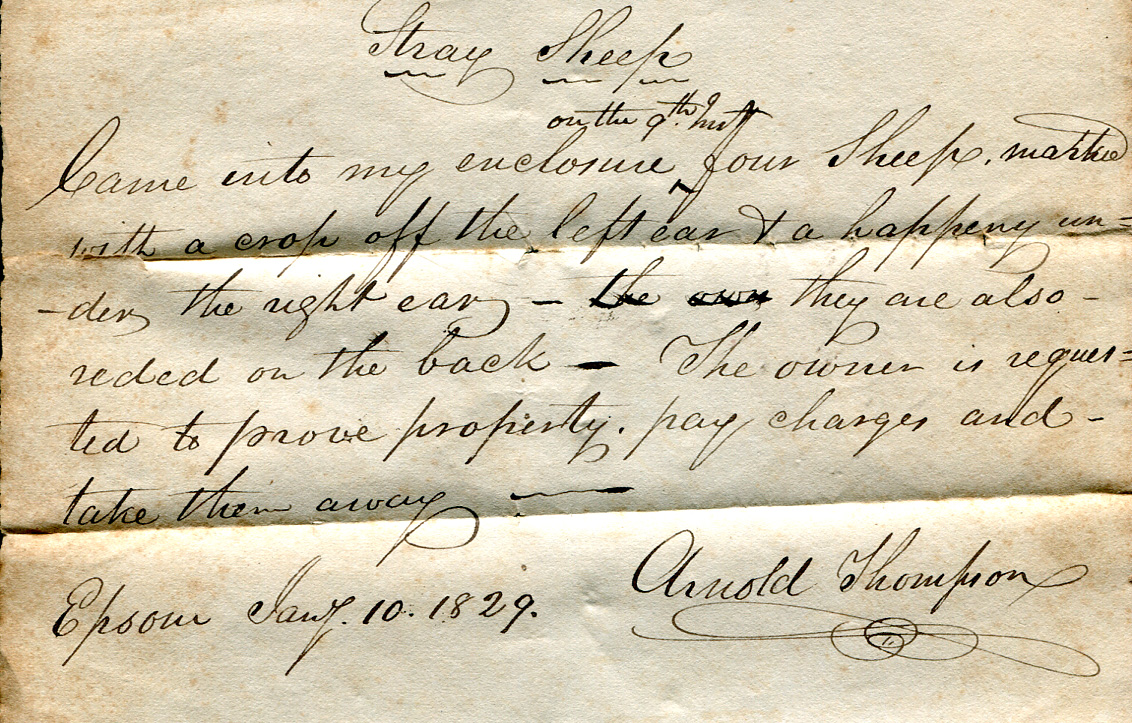 Stray Sheep
on the 9th. Inst
Came into my enclosure, four Sheep, marked
with a crop off the left ear & a happeny un=
-der the right ear - the own they are also -
reded on the back - The owner is reques=
ted to prove property. pay charges and -
take them away -
Epsom Jany. 10. 1829.
Arnold Thompson